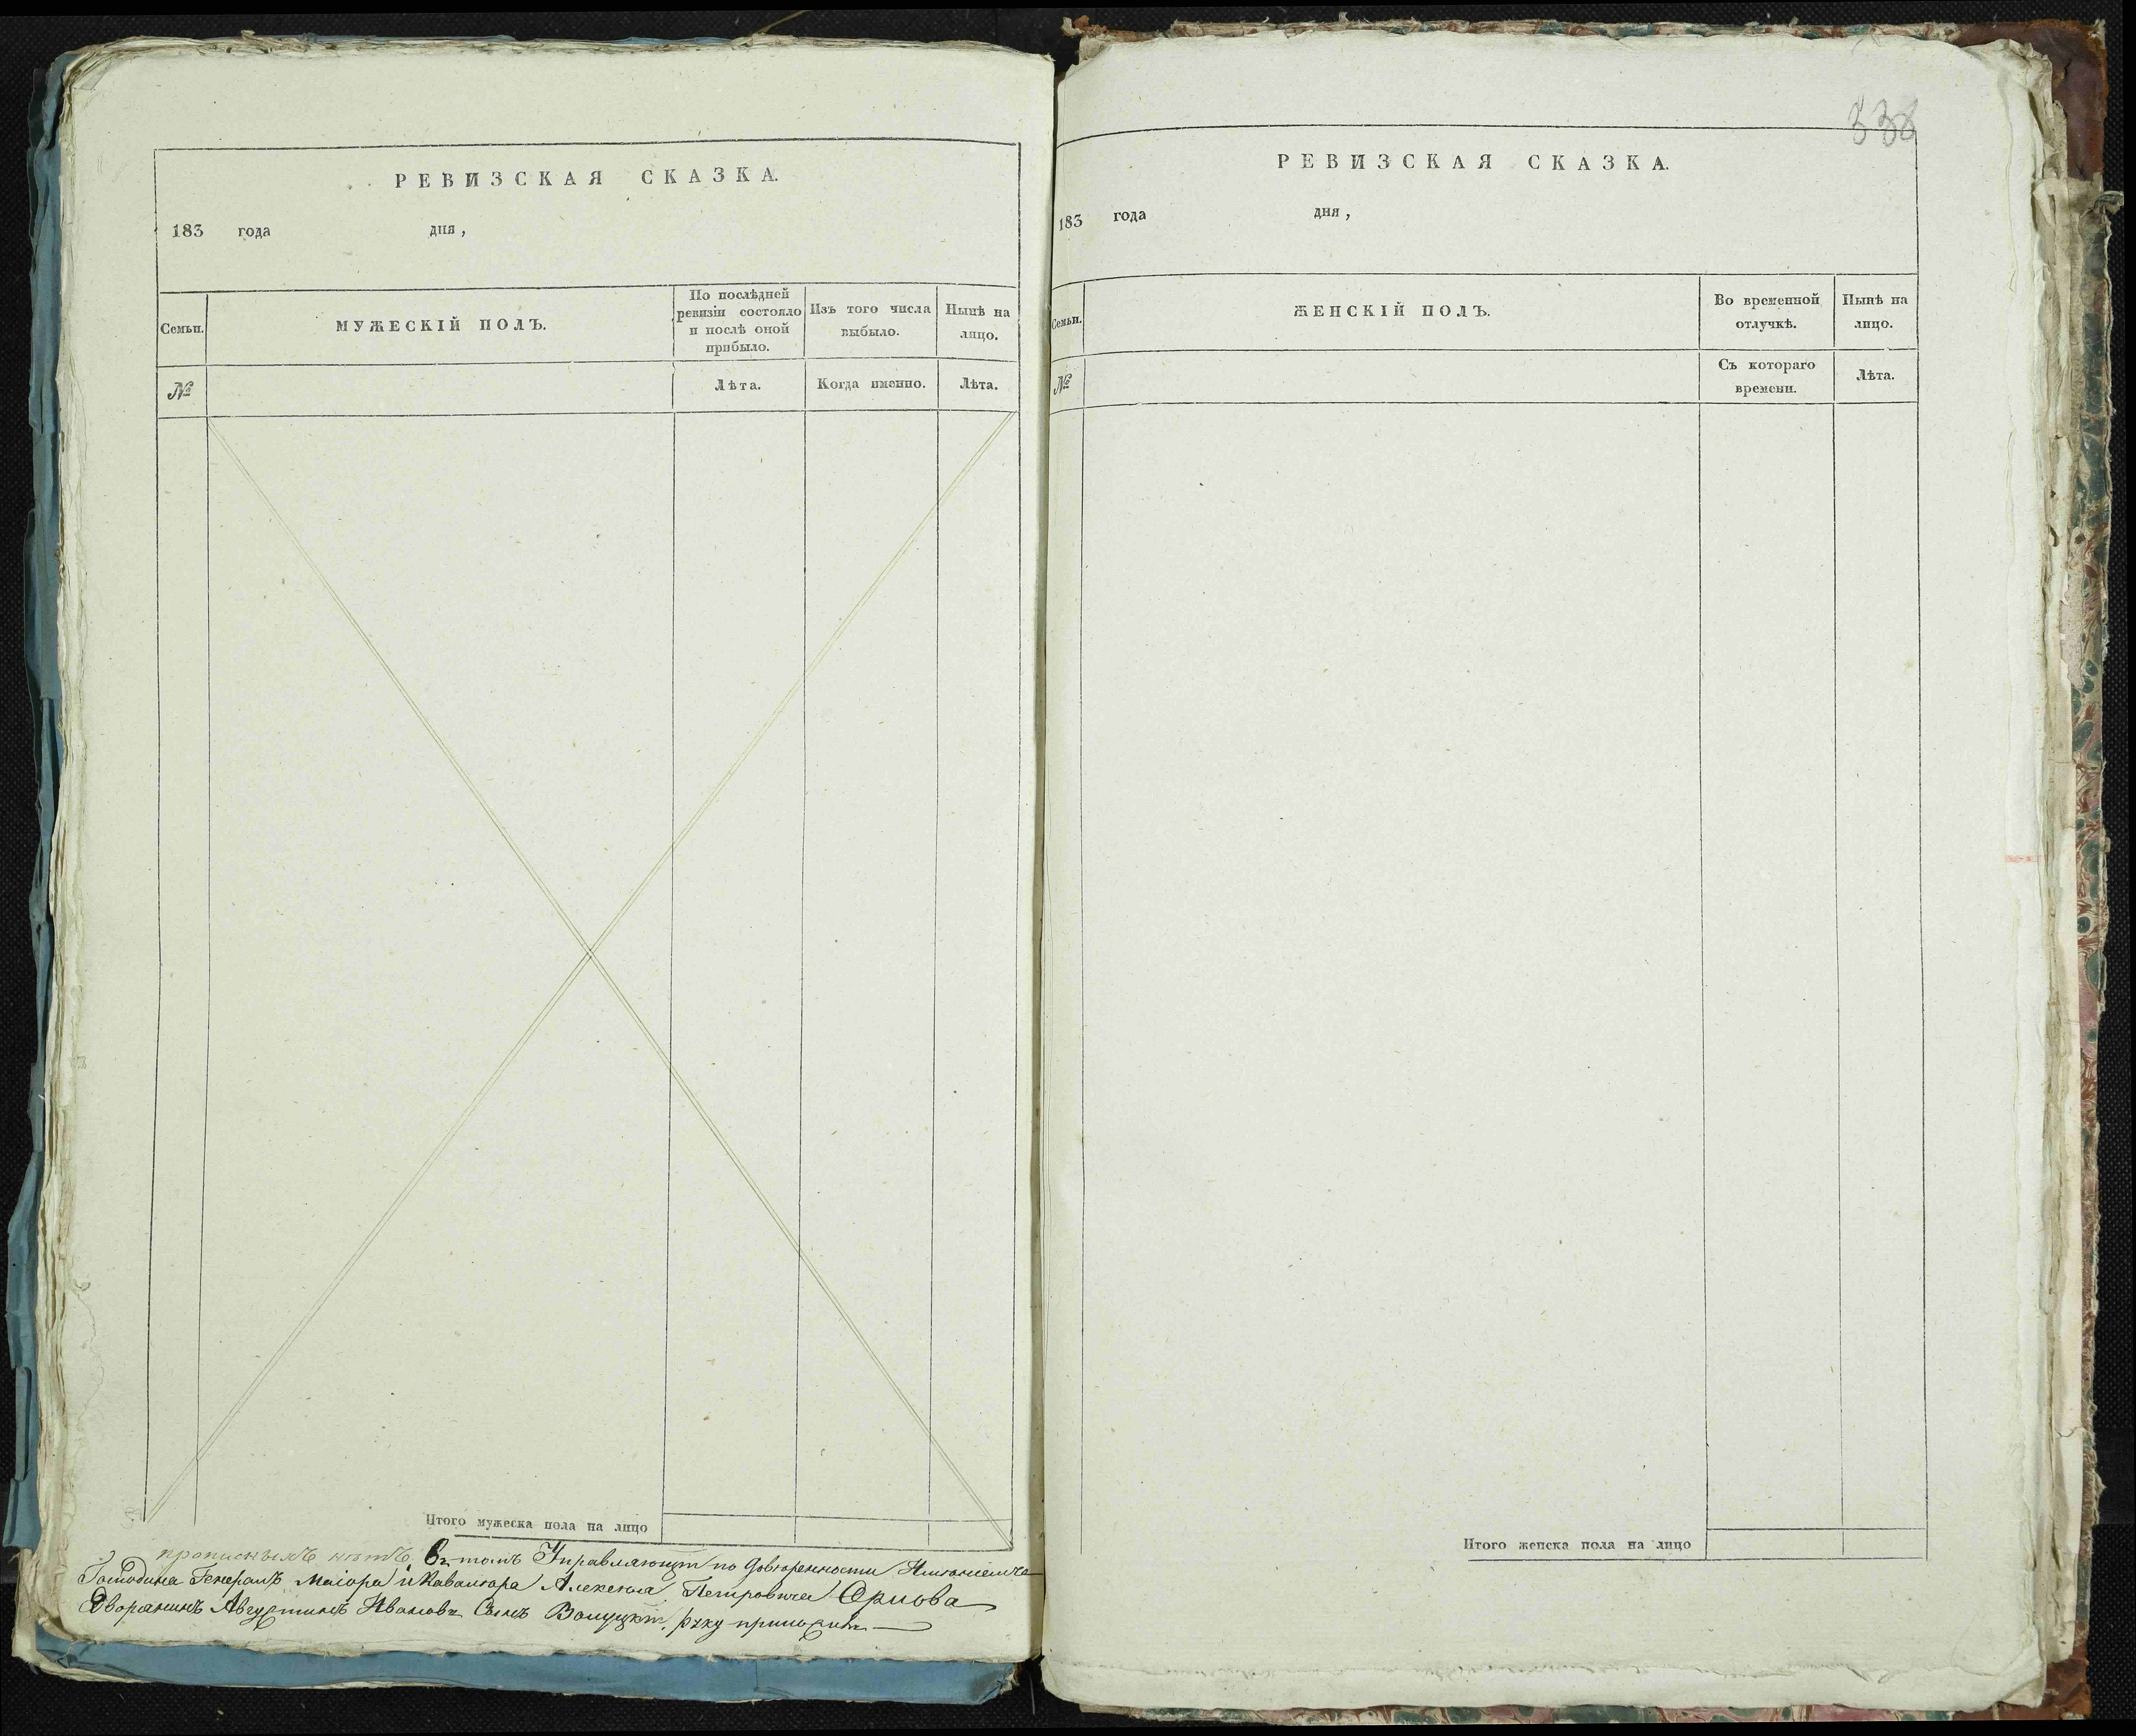 РЕВИЗСКАЯ СКАЗКА.
183 года дня,
Семьи.
МУЖЕСКІЙ ПОЛЪ.
По послѣдней
ревизіи состояло
и послѣ оной
прибыло.
Изъ того числа
выбыло.
Нынѣ на
лицо.
№
Лѣта.
Когда именно.
Лѣта.
Итого мужеска пола на лицо
прописныхъ нѣтъ. Въ томъ Управляющій по доверенности Имѣніемъ
Господина Генералъ Маіора и Кавалера Алексѣя Петровича Орлова
Дворянинъ Августинъ Ивановъ Сынъ руку приложилъ
338
РЕВИЗСКАЯ СКАЗКА.
183 года дня,
Семьи.
ЖЕНСКІЙ ПОЛЪ.
Во временной
отлучкѣ.
Нынѣ на
лицо.
№
Съ котораго
времени.
Лѣта.
Итого женска пола на лицо